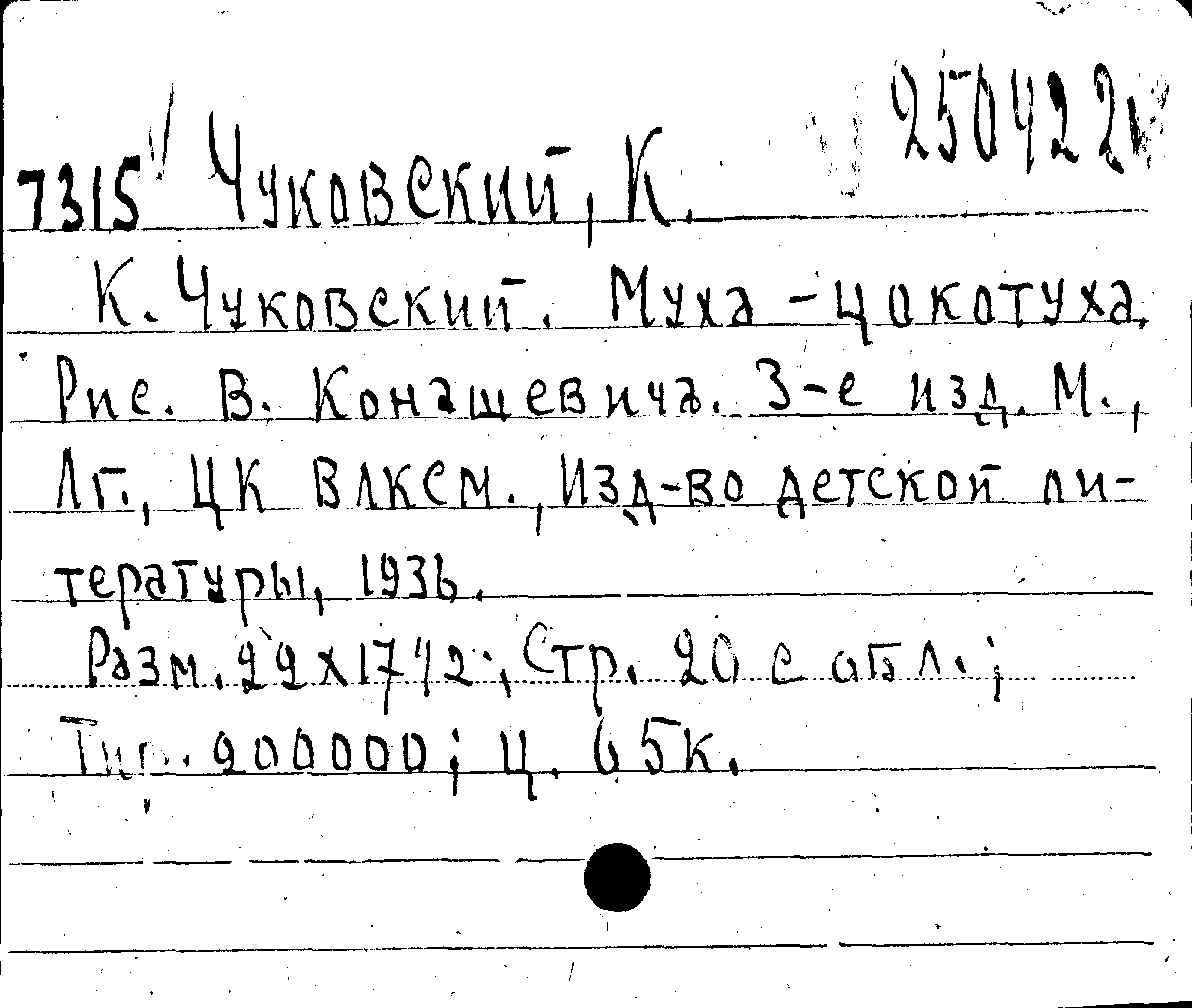 250422
7315 Чуковский, К.
К. Чуковский. Муха-цокотуха.
Рис. В. Конашевича. 3-е изд. М.,
Лг., ЦК ВЛКСМ., Изд-во детской ли-
тературы, 1936.
Разм. 22х17 1/2; Стр. 20 с обл.;
Тир. 200000; Ц. 65к.